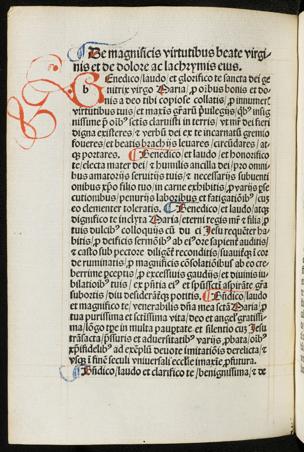 De magnificis virtutibus beate virgi-
nis et de dolore ac lachrymis eius.
Benedico/laudo et glorifico te sancta dei ge
nitrix virgo Maria/ ꝓ oībus bonis et do-
nis a deo tibi copiose collatis/
virtutibus tuis/ et maxīs
digna existeres/ et verbū dei ex te incarnatū gremio
foueres/ et beatis brachijs leuares/ circūdares/ at-
qꝫ portares. Benedico/laudo et honorifico
te/electa mater dei/ et humilis ancilla dei/ pro omni
bus amatorijs seruitijs tuis/ et necessarijs subuenti
onibus xp̄o filio tuo/ in carne exhibitis/
cutionibus/ penurijs laboribus et fatigatiōibus/
eo clementer toleratis. Benedico/laudo/ atqꝫ
dignifico te inclyta Maria/eterni regis mr̄ et filia/ ꝓ
tuis dulcibꝰ colloquijs cū Iesu requēter ha
bitis/ ꝓ deificis sermōibꝰ ab eiꝰ ore sapient auditis/
et casto sub pectore diligēt reconditis/
de ruminatis/ ꝓ magnificis cōsolatiōibus ab eo cre-
berrime perceptis/ ꝓ excessiuis gaudijs et diuinis iu-
bilatiōibꝰ tuis/ ex pn̄tia ei
subortis/ diu desideratēqꝫ potitis. Bn̄dico/laudo
et magnifico te/ venerabilis dn̄a mea sctā Maria/ ꝓ
tua purissima et sctīssima vita/ deo et angel gratissi-
ma/ lōgo tꝑe in multa paupertate et silentio cū Iesu
trāsacta/ et aduersitatibꝰ varijs ꝓbata/ oībꝰ
xp̄ifidelibꝰ ad exēplū deuote imitatiōis derelicta/ et
vsqꝫ ī finē seculi vniuersali ecclīe
Bn̄dico/laudo et clarifico te/ benignissima/ et de